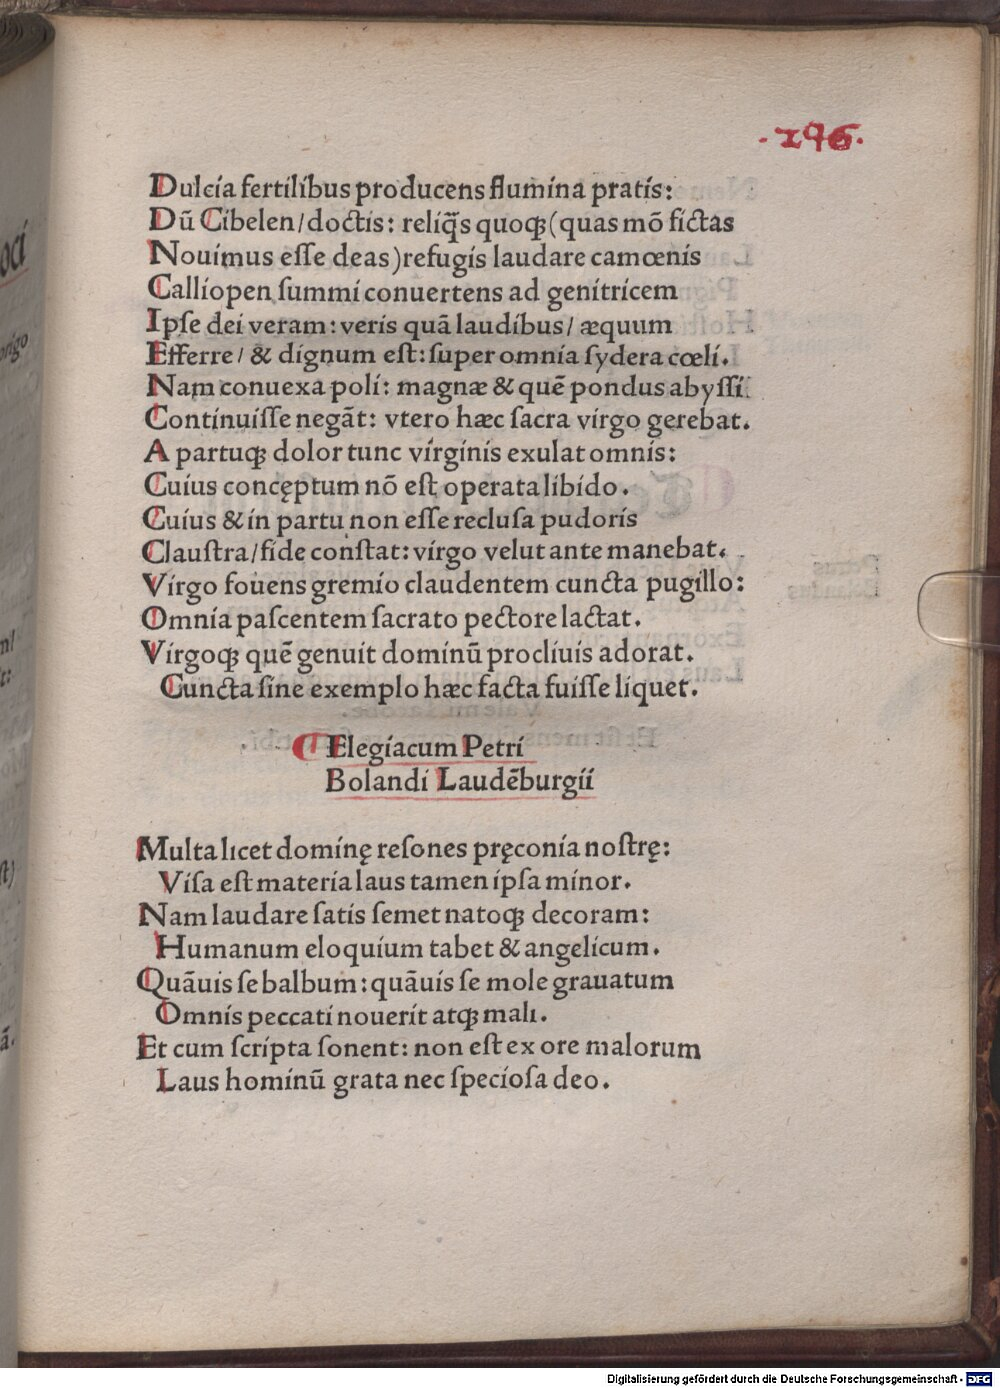 .196.
Dulcia fertilibus producens flumina pratis:
Dū Cibelen/doctis: reliq̄s quoqꝫ(quas mō fictas
Nouimus eſſe deas)refugis laudare camœnis
Calliopen ſummi conuertens ad genitricem
Ipſe dei veram: veris quā laudibus/ æquum
Efferre/ & dignum eſt: ſuper omnia ſydera cœli.
Nam conuexa poli: magnæ & quē pondus abyſſi
Continuiſſe negāt: vtero hæc ſacra virgo gerebat.
A partuqꝫ dolor tunc virginis exulat omnis:
Cuius concęptum nō eſt operata libido.
Cuius & in partu non eſſe recluſa pudoris
Clauſtra/fide conſtat: virgo velut ante manebat.
Virgo fouens gremio claudentem cuncta pugillo:
Omnia paſcentem ſacrato pectore lactat.
Virgoqꝫ quē genuit dominū procliuis adorat.
Cuncta ſine exemplo hæc facta fuiſſe liquet.
Elegiacum Petri
Bolandi Laudēburgii
Multa licet dominę reſones pręconia noſtrę:
Viſa eſt materia laus tamen ipſa minor.
Nam laudare ſatis ſemet natoqꝫ decoram:
Humanum eloquium tabet & angelicum.
Quāuis ſe balbum: quāuis ſe mole grauatum
Omnis peccati nouerit atqꝫ mali.
Et cum ſcripta ſonent: non eſt ex ore malorum
Laus hominū grata nec ſpecioſa deo.
Digitalisierung gefördert durch die Deutsche Forschungsgemeinschaft - DFG